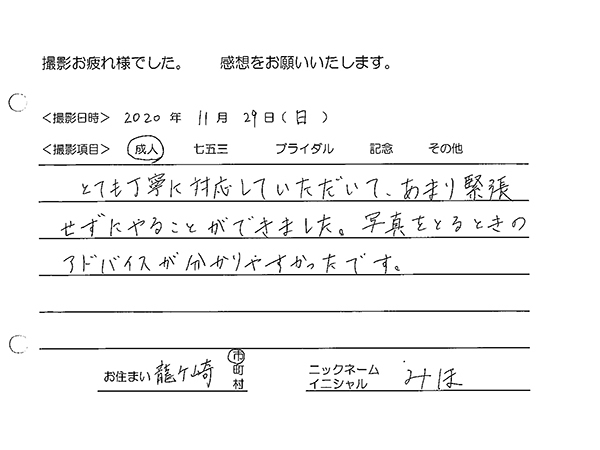 撮影お疲れ様でした。　感想をお願いいたします。
＜撮影日時＞ 2020 年 11 月 29 日（日）
＜撮影項目＞ 成人 七五三 ブライダル 記念 その他
とても丁寧に対応していただいて、あまり緊張
せずにやることができました。写真をとるときの
アドバイスが分かりやすかったです。
お住まい 龍ケ崎 市町村
ニックネーム イニシャル みほ